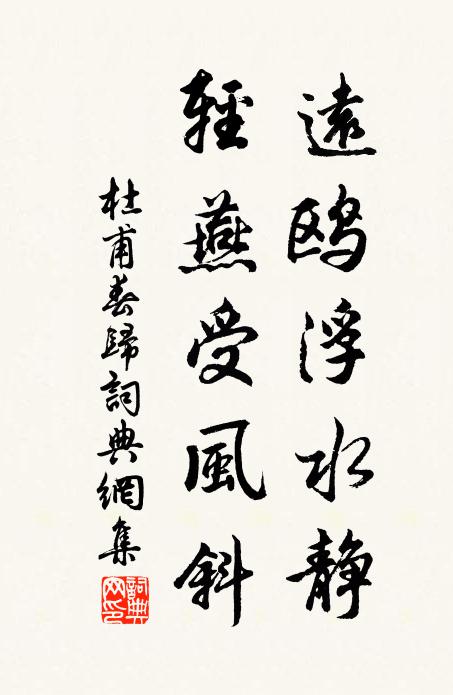 遠鸥浮水静
輕燕受風斜
杜甫春歸詞典網集
詞典网印